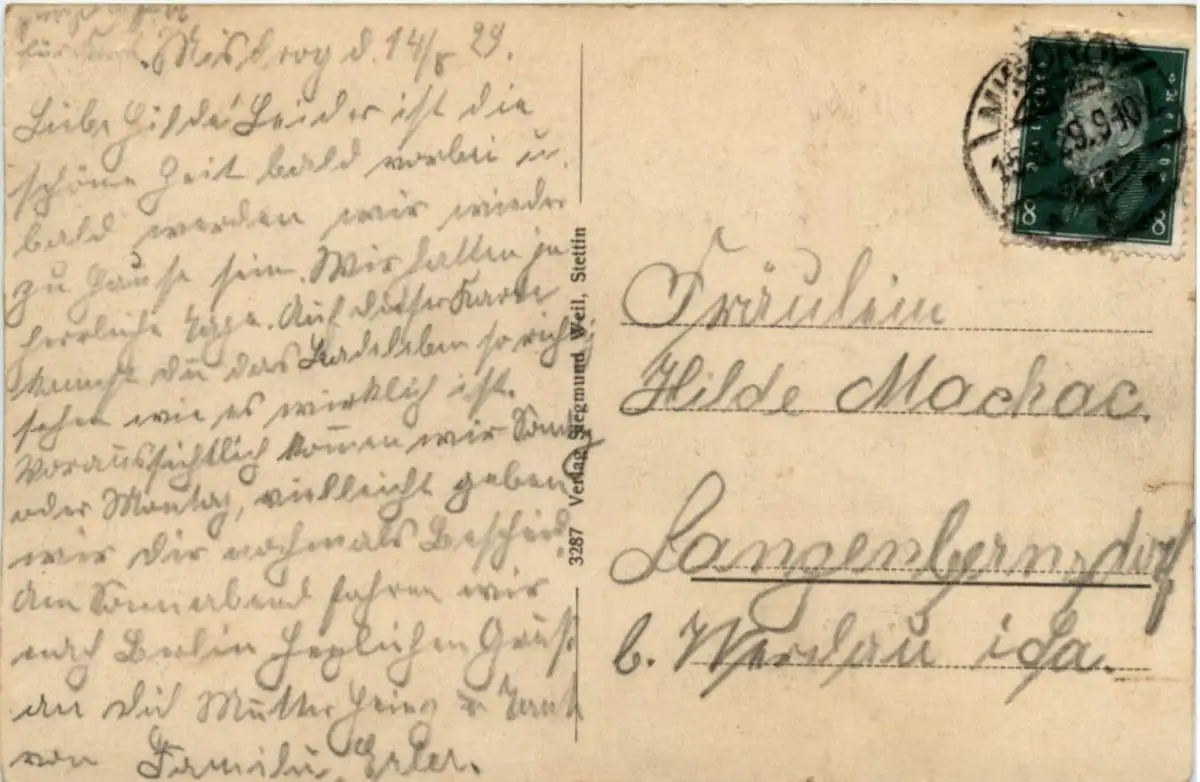 Misdroy d. 14/8 29.
Liebe Hilde! Leider ist die
schöne Zeit bald vorbei u.
bald werden wir wieder
zu Hause sein. Wir hatten ja
herrliche Tage. Auf dieser Karte
kannst du das Badeleben so richtig
sehen wie es wirklich ist.
Voraussichtlich kommen wir Sonntag
oder Montag, vielleicht geben
wir Dir nochmals Bescheid.
Am Sonnabend fahren wir
nach Berlin Herzlichen Gruß
an Dich Mutter Heinz u. Tante
von Familie Erler.
3287 Verlag Siegmund Weil, Stettin
MISDROY
15. 8. 29. 9-10
Deutsches Reich
8 8
Fräulein
Hilde Machac.
Langenbernsdorf
b. Werdau i Sa.